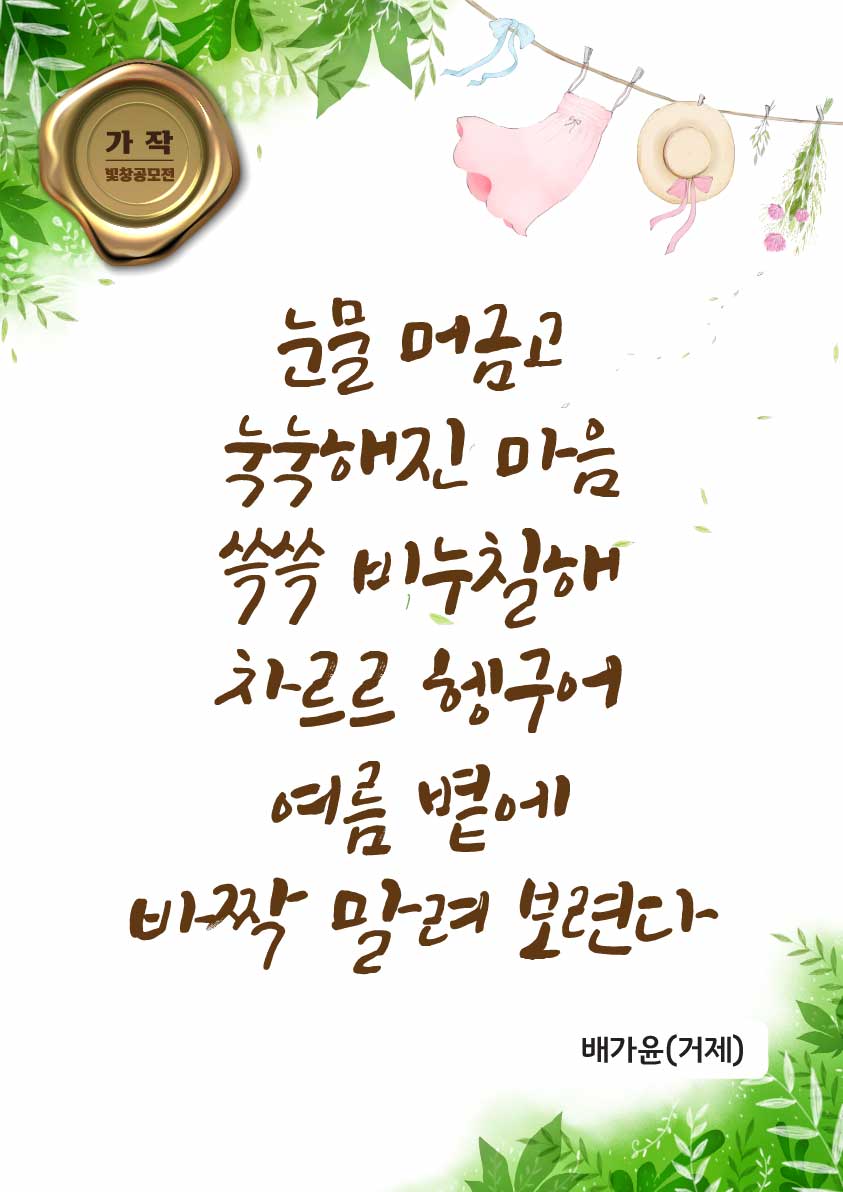 가 작
빛창공모전
눈물 머금고
눅눅해진 마음
쓱쓱 비누칠해
차르르 헹구어
여름 볕에
바짝 말려 보련다
배가윤(거제)